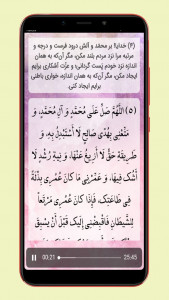 (۴) خدایا! بر محمد و آلش درود فرست و درجه و
مرتبه مرا نزد مردم بلند مکن، مگر آن‌که به همان
اندازه نزد خودم پَست گردانی؛ و عزّت آشکاری برایم
ایجاد مکن، مگر آن‌که به همان اندازه، خواری باطنی
برایم ایجاد کنی.
(۵) اللَّهُمَّ صَلِّ عَلَى مُحَمَّدٍ وَ آلِ مُحَمَّدٍ، وَ
مَتِّعْنِي بِهُدًى صَالِحٍ لَا أَسْتَبْدِلُ بِهِ، وَ
طَرِيقَةِ حَقٍّ لَا أَزِيغُ عَنْهَا، وَ نِيَّةِ رُشْدٍ لَا
أَشُكُّ فِيهَا، وَ عَمِّرْنِي مَا كَانَ عُمُرِي بِذْلَةً
فِي طَاعَتِكَ، فَإِذَا كَانَ عُمُرِي مَرْتَعاً
لِلشَّيْطَانِ فَاقْبِضْنِي إِلَيْكَ قَبْلَ أَنْ يَسْبِقَ
00:21
25:45